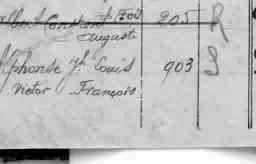 Albert Constant Fois 205 R
Auguste
Alphonse Jh Louis 903 S
Victor François